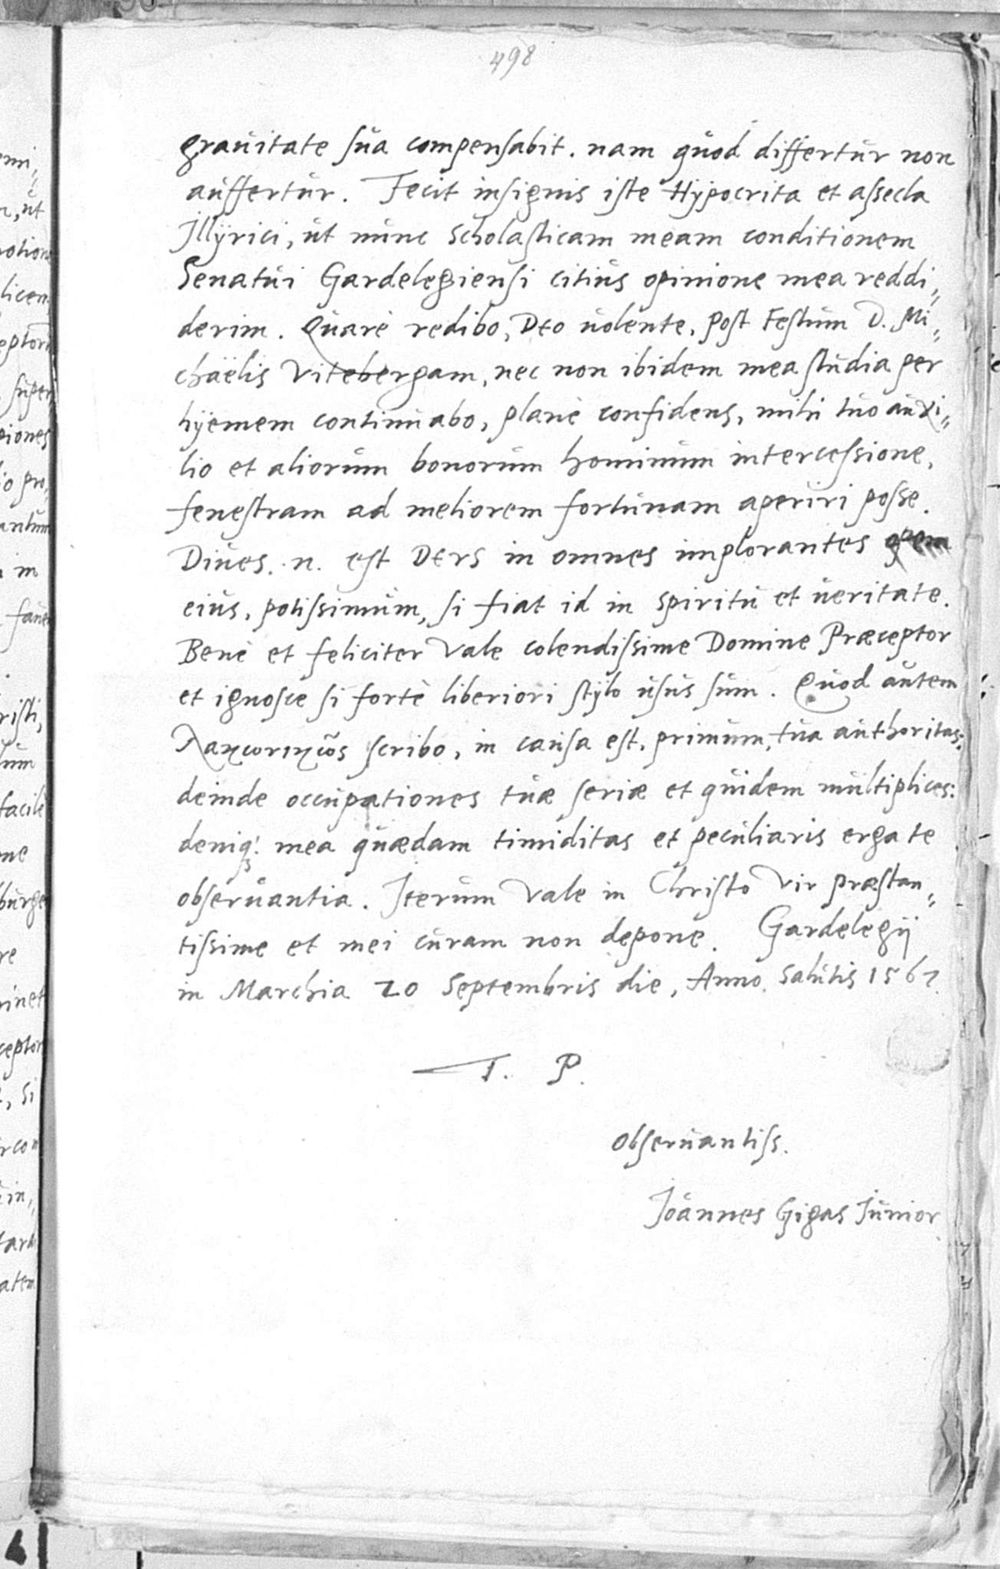 498
grauitate sua compensabit. nam quod differtur non
auffertur. Fecit insignis iste Hypocrita et assecla
Illÿrici, ut nunc scholasticam meam conditionem
Senatui Gardelegiensi citius opinione mea reddi„
derim. Quarè redibo, Deo uolente, post Festum D. Mi„
chaëlis Vitebergam, nec non ibidem mea studia per
hÿemem continuabo, planè confidens, mihi tuo auxi„
lio et aliorum bonorum hominum intercessione,
fenestram ad meliorem fortunam aperiri posse.
Diues. n. est DEVS in omnes implorantes opem
eius, potissimum, si fiat id in spiritu et ueritate.
Benè et feliciter Vale colendissime Domine Præceptor
et ignosce si fortè liberiori stÿlo usus sum. Quod autem
λακωνικῶς scribo, in causa est, primum, tua authoritas:
deinde occupationes tuæ seriæ et quidem multiplices:
deniq; mea quædam timiditas et peculiaris erga te
obseruantia. Iterum Vale in Christo Vir præstan„
tissime et mei curam non depone. Gardelegij
in Marchia 20 Septembris die, Anno salutis 1567.
T. P.
Obseruantiss.
Joannes Gigas Junior